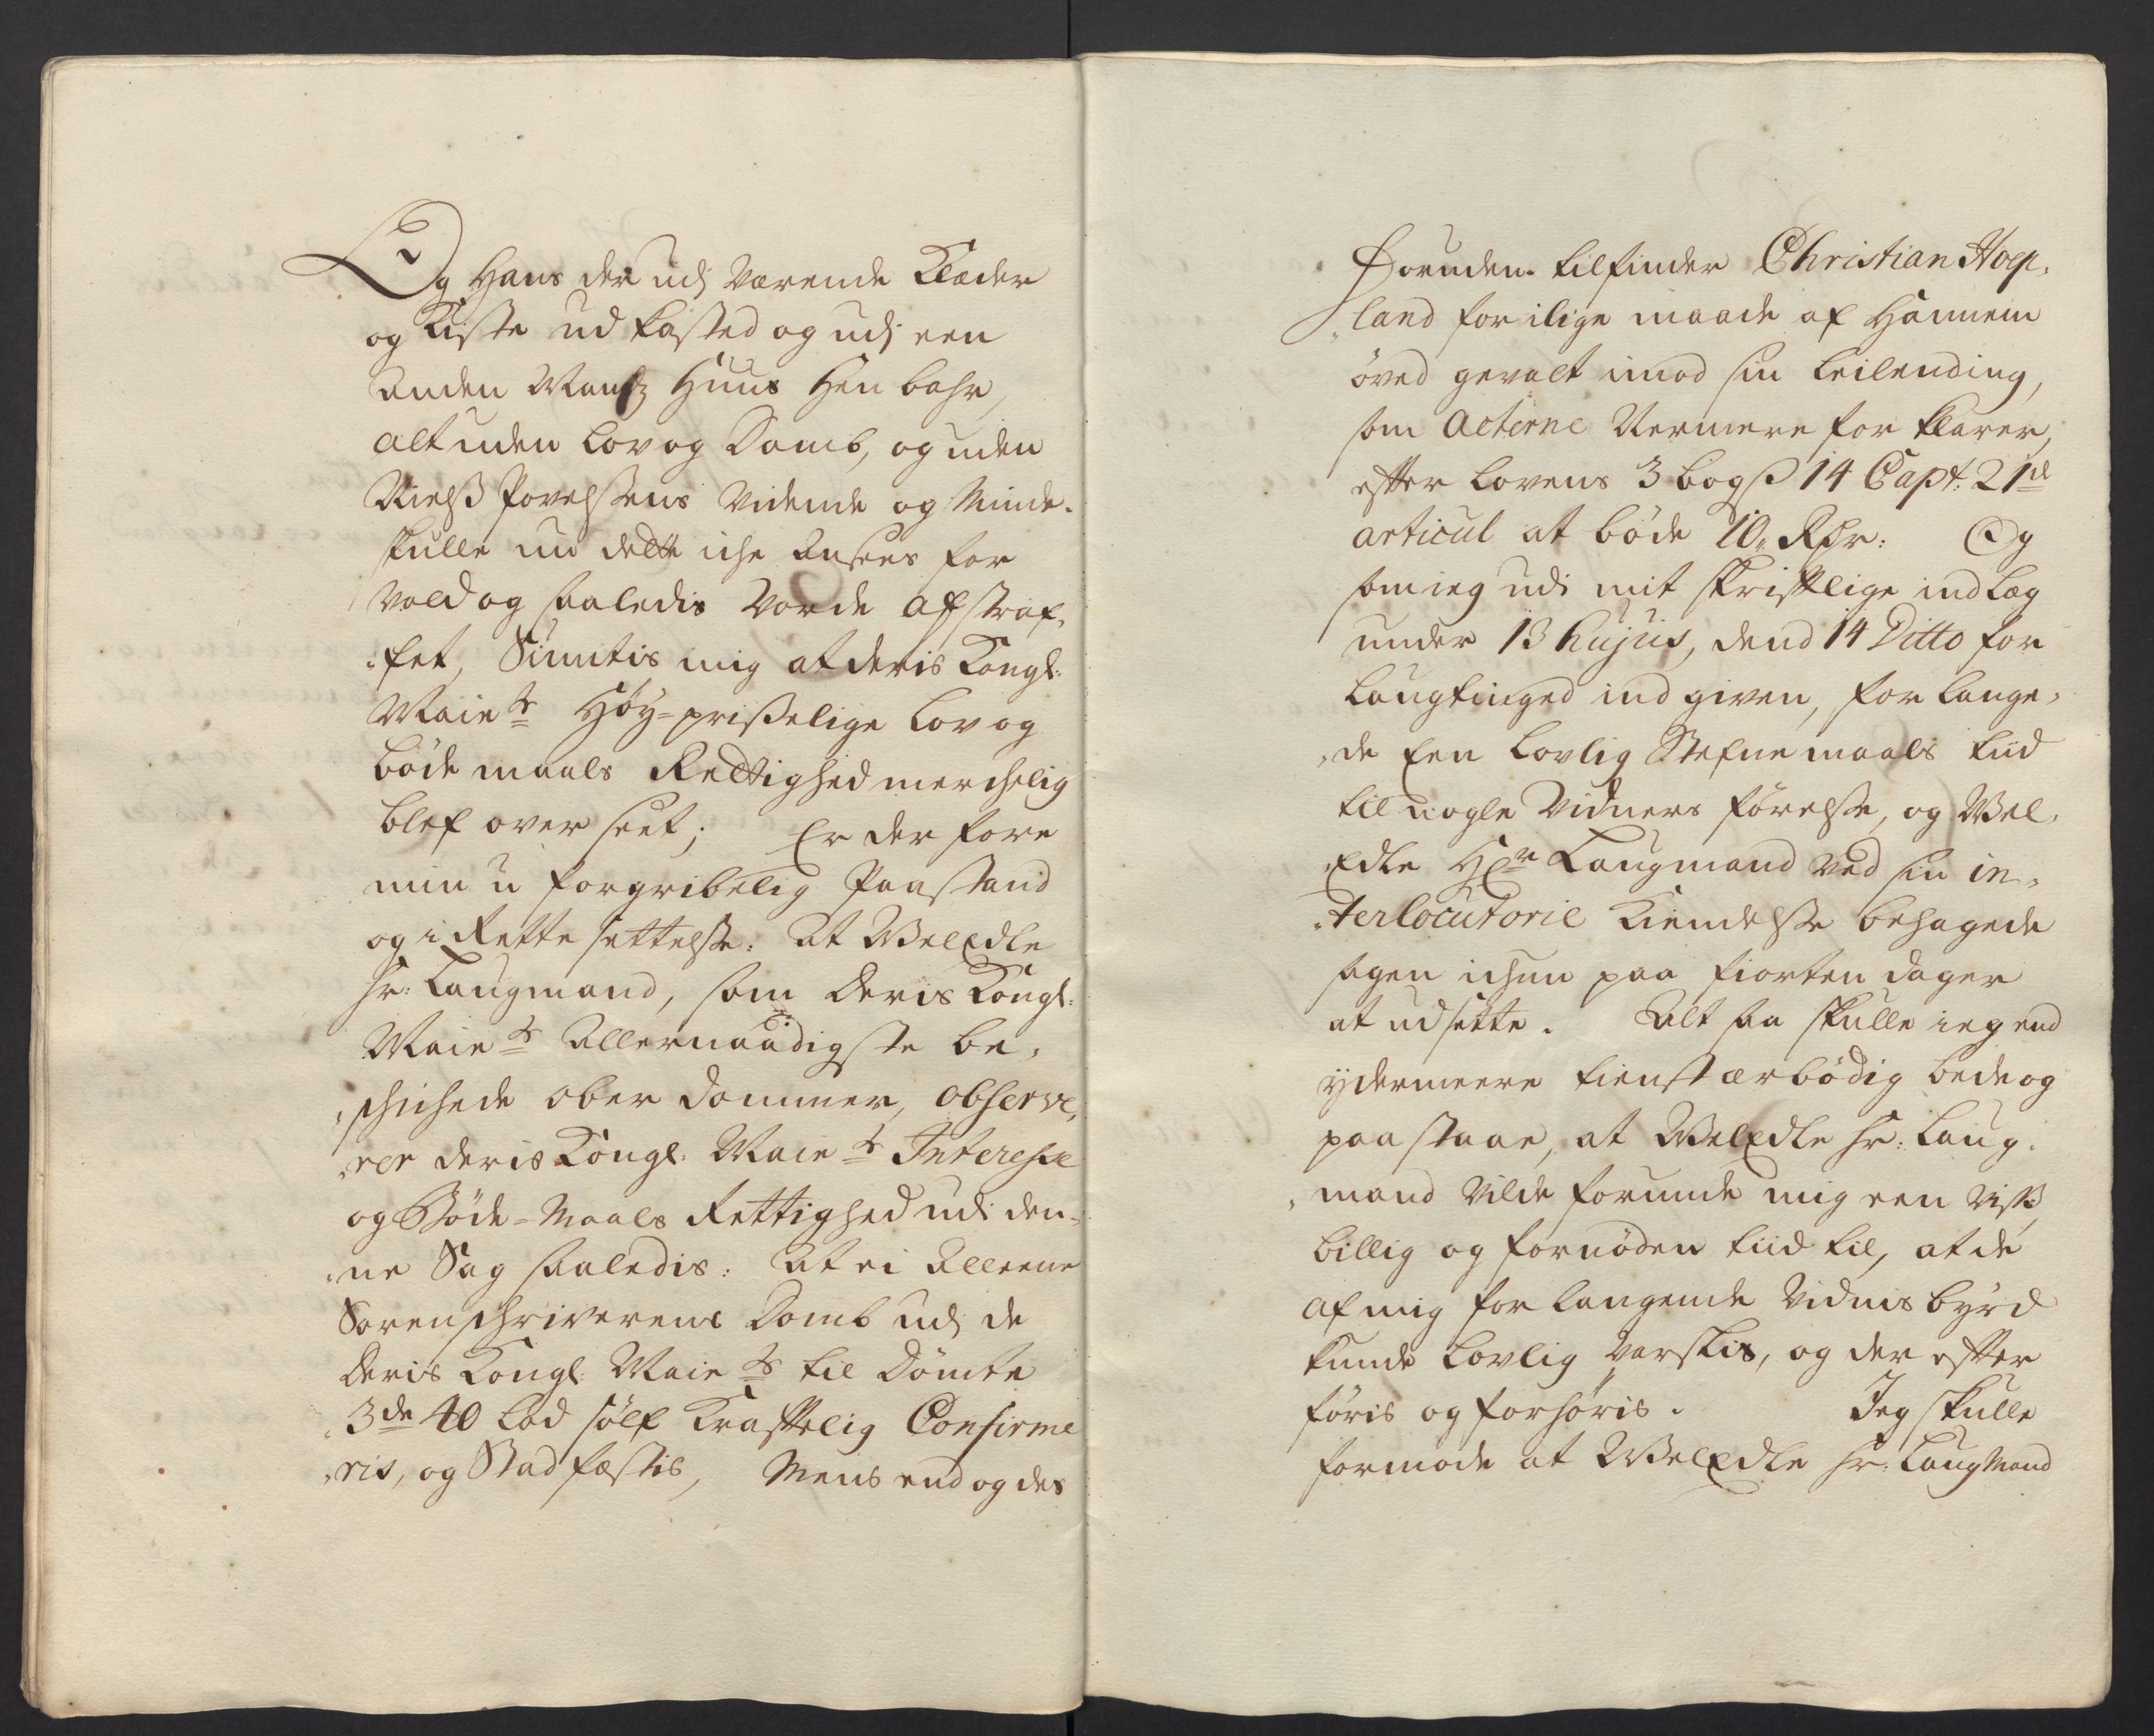 Og Hans der udj Værende Klæder
og Kiste ud kasted og udj een
anden Mands Huus hen bahr,
alt uden Lov og Domb, og uden
Nielß Povelsens Vidende og Minde.
skulle nu dette iche ansees for
Vold og saaledis vorde afstraf,
,,fet, Siuntis mig at deris Kongl:
Maiets Høy-prißelige Lov og
bøde maals Rettighed merchelig
blef over seet; Er der fore
min u forgribelig Paastand
og i Rette settelse: At VelEdle
Hr: Laugmand, som deris Kongl:
Maiets Allernaadigste be,
,,schichede ober dommer, observe,
,,rer deris Kongl: Maiets Interesse
og Bøde-Maals Rettighed udi den,
,,ne Sag saaledis: At ei alleene
Sorenschriverens Domb udj de
deris Kongl: Maiets til Dømte
3de 40 Lod sølf Krafftelig Confirme
,,ris, og Stad fæstis, Mens end og des
Foruden tilfinder Christian Hoep,
,,land for ilige maade af Hannem
øved gevalt imod sin Leilending,
som Acterne Nermere for klarer,
efter Lovens 3 bogß 14 Capt: 21de
articul at bøde 10 Rdr: Og
som ieg udi mit skrifftlige indlæg
under 13 hujus, dend 14 Ditto for
Laugtinged ind given, for lange,
,,de Een Lovlig Stefne maals tiid
til nogle Vidners førelse, og Vel,
,,Edle Hr Laugmand ved sin in,
,,terlocutorie Kiendelse behagede
sagen ichun paa fiorten dager
at udsette. Alt saa skulle ieg end
ydermeere tienst ærbødig bede og
paastaae, at VelEdle Hr: Laug,
,,mand vilde forunde mig een viß,
billig og fornøden tiid til, at de
af mig for langende Vidnisbyrd
kunde Lovlig varslis, og der efter
føris og forhøris. Jeg skulle
formode at VelEdle Hr: LaugMand